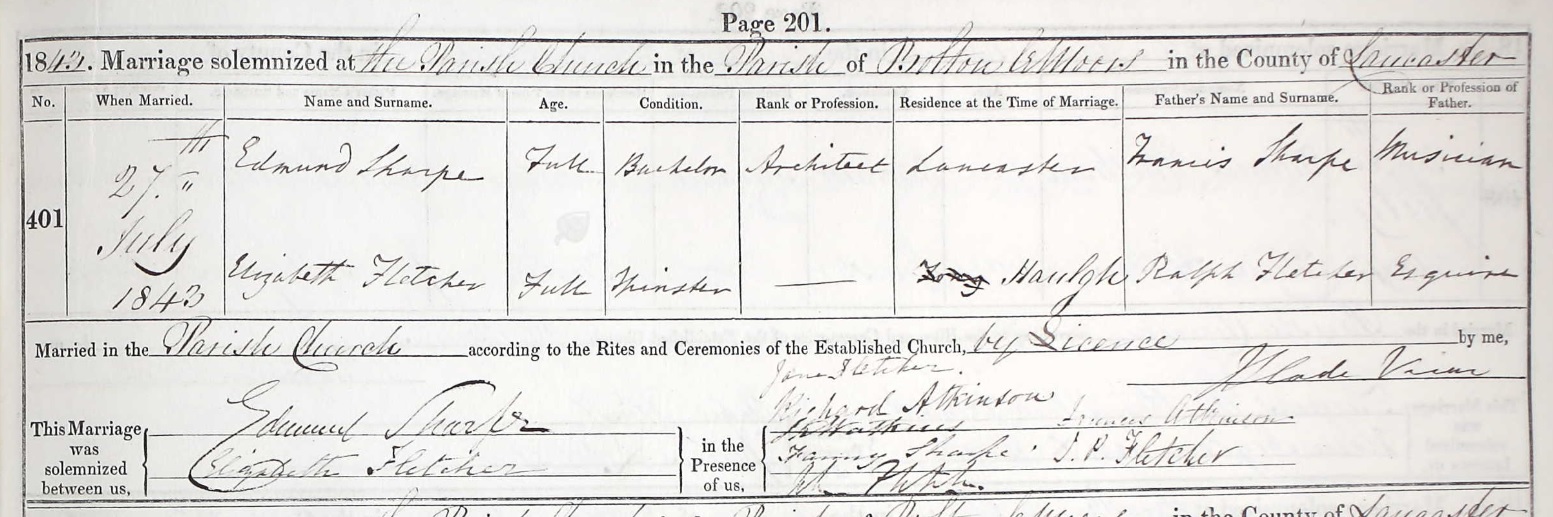 Page 201.
1843. Marriage solemnized at the Parish Church in the Parish of Bolton le Moors in the County of Lancaster
No. When Married. Name and Surname. Age. Condition. Rank or Profession. Residence at the Time of Marriage. Father's Name and Surname. Rank or Profession of Father.
401 27th July 1843
Edmund Sharpe Full Bachelor Architect Lancaster Francis Sharpe Musician
Elizabeth Fletcher Full Spinster — Haulgh Ralph Fletcher Esquire
Married in the Parish Church according to the Rites and Ceremonies of the Established Church, by Licence by me,
Jane Fletcher. Slade Vicar
Richard Atkinson
This Marriage was solemnized between us, Edmund Sharpe in the Presence of us, Frances Atkinson
Elizabeth Fletcher Fanny Sharpe. Fletcher
in the County of Lancaster